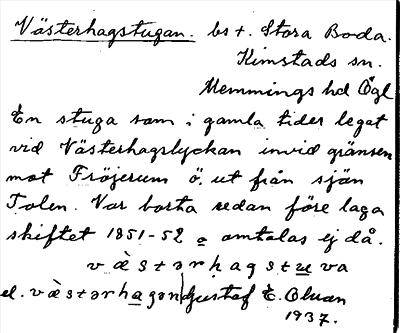 Västerhagstugan. bs t. Stora Boda.
Kimstads sn.
Memmings hd Ögl
En stuga som i gamla tider legat
vid Västerhagslyckan invid gränsen
mot Fröjerum ö. ut från sjön
Tolen. Var borta redan före laga
skiftet 1851-52 o omtalas ej då.
v ä̀ s t ə r h a g s t u v a
el. v ä̀ s t ə r h a g ə n Gustaf E. Olsson
1937.